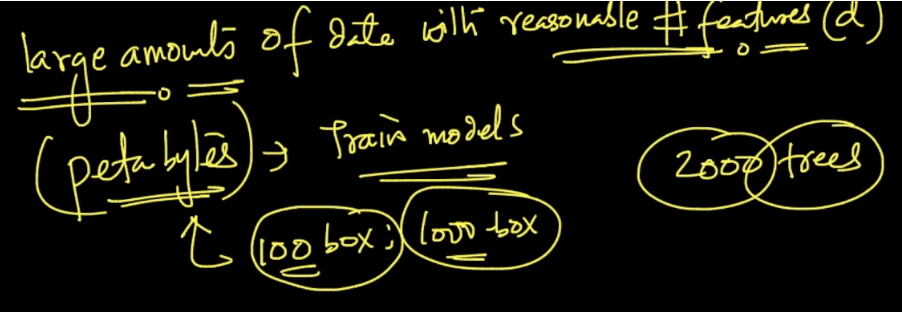 large amounts of data with reasonable # features (d)
(petabytes) → Train models
2000 trees
100 box; 1000 box